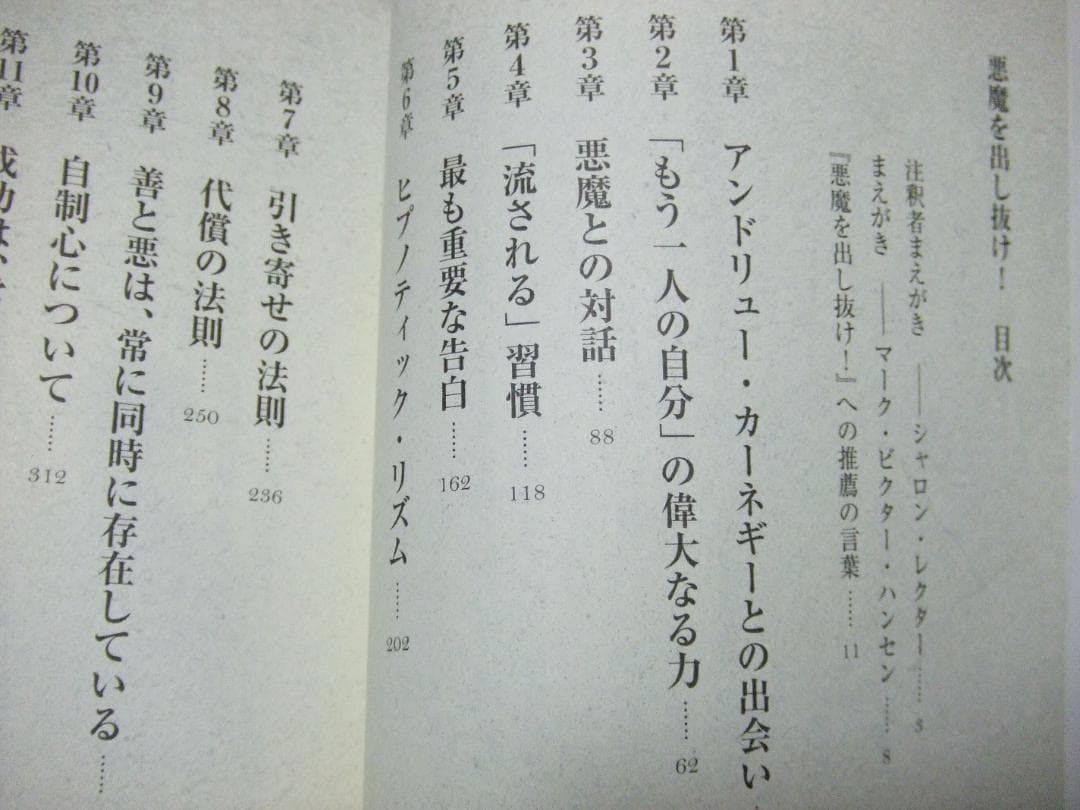 悪魔を出し抜け！　目次
注釈者まえがき　――シャロン・レクター…… 5
まえがき　――マーク・ビクター・ハンセン…… 8
『悪魔を出し抜け！』への推薦の言葉…… 11
第1章　アンドリュー・カーネギーとの出会い
第2章　「もう一人の自分」の偉大なる力…… 62
第3章　悪魔との対話…… 88
第4章　「流される」習慣…… 118
第5章　最も重要な告白…… 162
第6章　ヒプノティック・リズム…… 202
第7章　引き寄せの法則…… 236
第8章　代償の法則…… 250
第9章　善と悪は、常に同時に存在している……
第10章　自制心について…… 312
第11章　成功は、